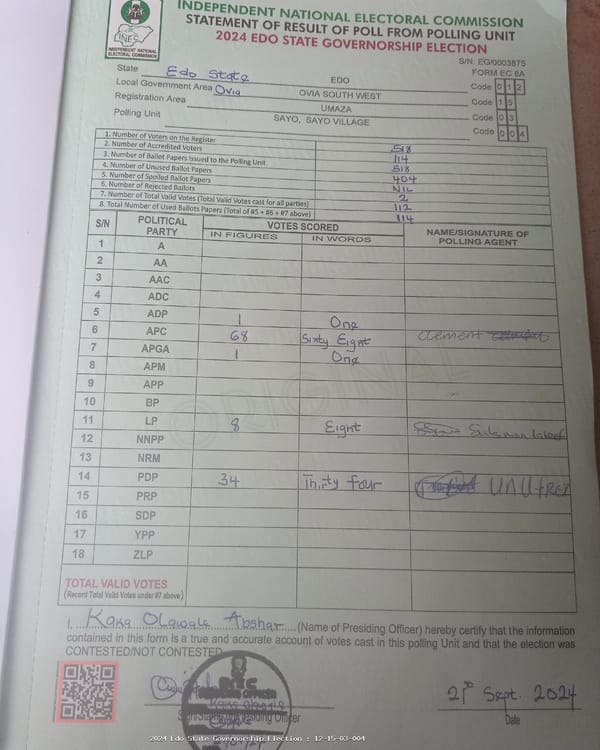 INEC
INDEPENDENT NATIONAL ELECTORAL COMMISSION
INDEPENDENT NATIONAL ELECTORAL COMMISSION
STATEMENT OF RESULT OF POLL FROM POLLING UNIT
2024 EDO STATE GOVERNORSHIP ELECTION
S/N: EG/0003875
FORM EC 8A
State Edo State EDO Code 0 1 2
Local Government Area Ovia OVIA SOUTH WEST Code 1 5
Registration Area UMAZA Code 0 3
Polling Unit SAYO, SAYO VILLAGE Code 0 0 4
1. Number of Voters on the Register 518
2. Number of Accredited Voters 114
3. Number of Ballot Papers Issued to the Polling Unit 518
4. Number of Unused Ballot Papers 404
5. Number of Spoiled Ballot Papers NIL
6. Number of Rejected Ballots 2
7. Number of Total Valid Votes (Total Valid Votes cast for all parties) 112
8. Total Number of Used Ballots Papers (Total of #5 + #6 + #7 above) 114
S/N POLITICAL PARTY VOTES SCORED NAME/SIGNATURE OF POLLING AGENT
IN FIGURES IN WORDS
1 A
2 AA
3 AAC
4 ADC
5 ADP 1 One
6 APC 68 Sixty Eight Clement
7 APGA 1 One
8 APM
9 APP
10 BP
11 LP 8 Eight
12 NNPP
13 NRM
14 PDP 34 Thirty four
15 PRP
16 SDP
17 YPP
18 ZLP
ORIGINAL
TOTAL VALID VOTES
(Record Total Valid Votes under #7 above)
I, Kaka Olawale Abshar (Name of Presiding Officer) hereby certify that the information
contained in this form is a true and accurate account of votes cast in this polling Unit and that the election was
CONTESTED/NOT CONTESTED
21st Sept. 2024
Date
2024 Edo State Governorship Election : 12-15-03-004